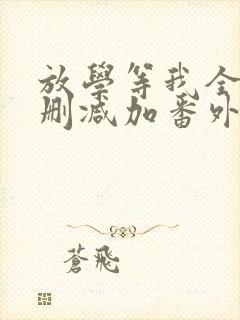 放學等我全
刪減加番外
蒼飛